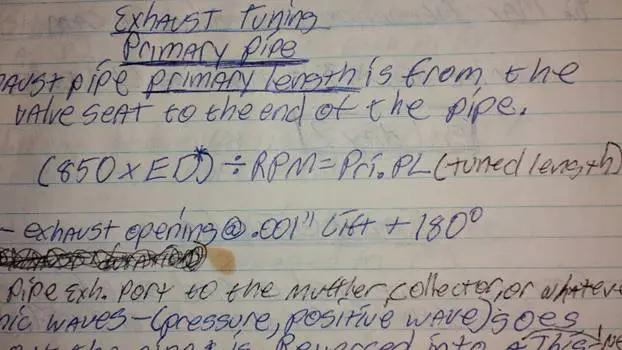 Exhaust Tuning
Primary pipe
aust pipe primary length is from the
valve seat to the end of the pipe.
(850 x ED*) ÷ RPM = Pri. PL (tuned length)
- exhaust opening @ .001" Lift + 180°
pipe exh. port to the muffler, collector, or whateve
nic waves - (pressure, positive wave) goes
out the pipe & is Reversed into a